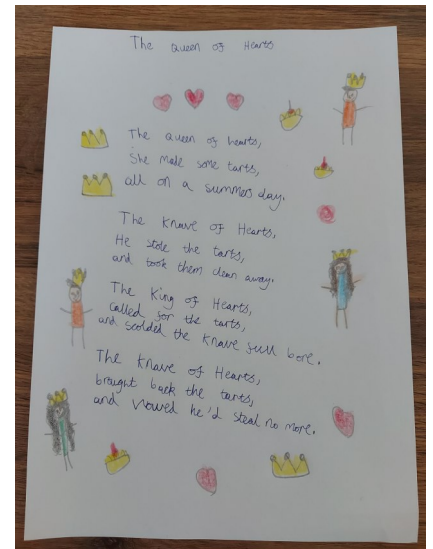 The Queen of Hearts
The Queen of hearts,
She made some tarts,
all on a summers day.
The Knave of Hearts,
He stole the tarts,
and took them clean away.
The King of Hearts,
called for the tarts,
and scolded the Knave full bore.
The Knave of Hearts,
brought back the tarts,
and vowed he'd steal no more.